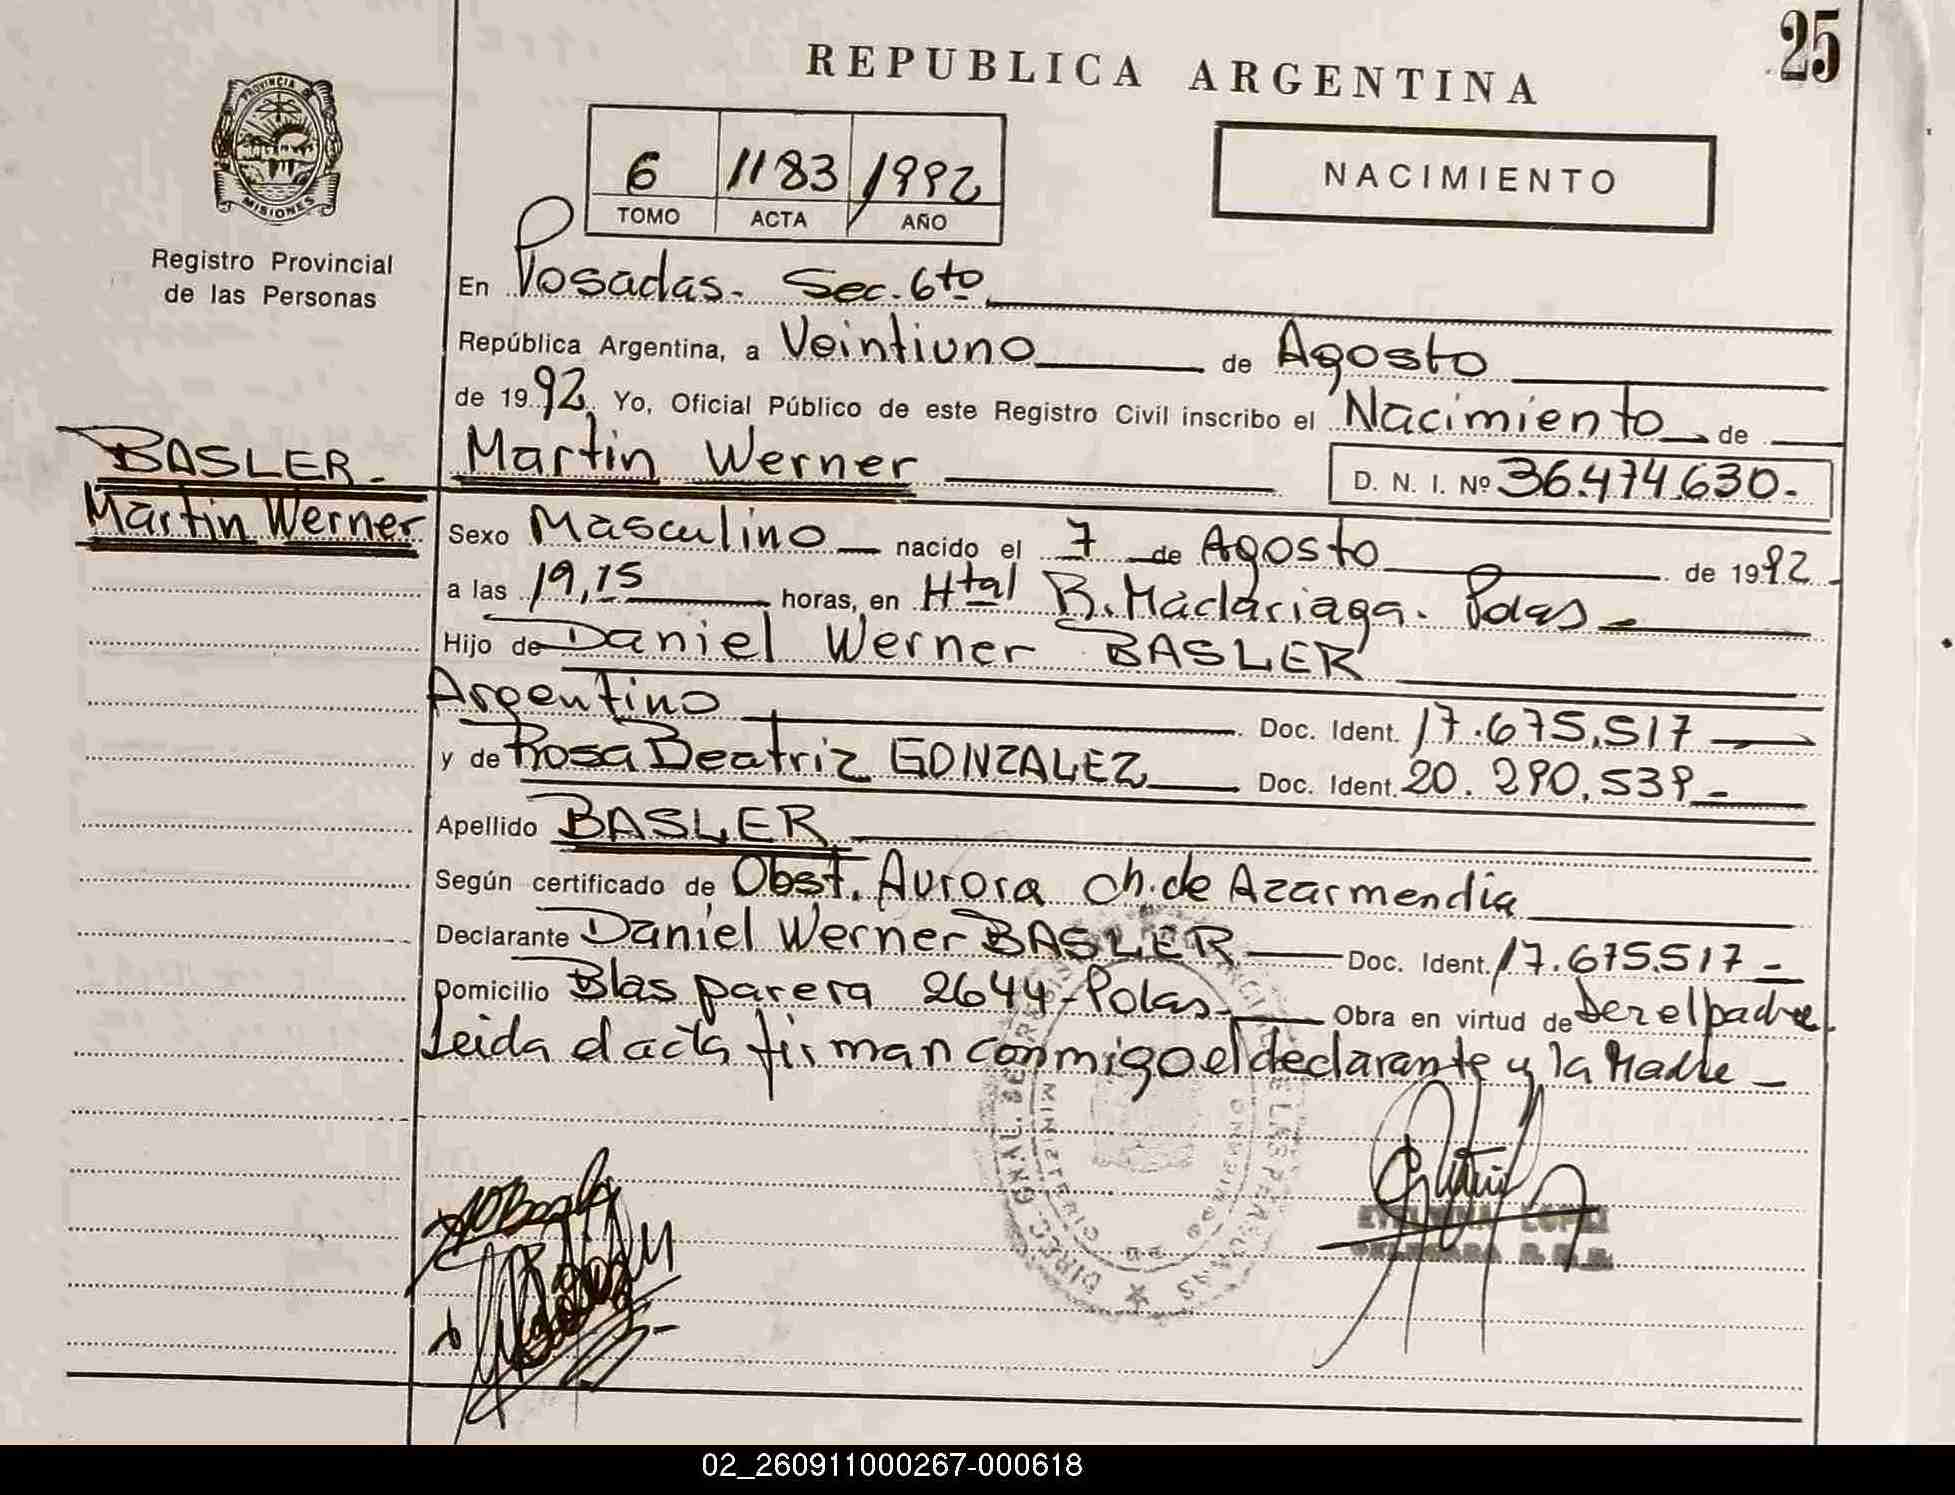 25
REPUBLICA ARGENTINA
PROVINCIA DE
MISIONES
Registro Provincial
de las Personas
6 1183 1992
TOMO ACTA AÑO
NACIMIENTO
En Posadas. Sec. 6to
República Argentina, a Veintiuno de Agosto
de 1992 Yo, Oficial Público de este Registro Civil inscribo el Nacimiento de
BASLER
Martin Werner
Martin Werner D. N. I. Nº 36.474.630.-
Sexo Masculino nacido el 7 de Agosto de 1992
a las 19,15 horas, en Htal R. Madariaga. Pdas
Hijo de Daniel Werner BASLER
Argentino Doc. Ident. 17.675.517
y de Rosa Beatriz GONZALEZ Doc. Ident. 20.290.539
Apellido BASLER
Según certificado de Obst. Aurora Ch. de Azarmendia
Declarante Daniel Werner BASLER Doc. Ident. 17.675.517
Domicilio Blas parera 2644 - Pdas Obra en virtud de ser el padre.
Leida el acta firman conmigo el declarante y la Madre
LOPEZ
02_260911000267-000618